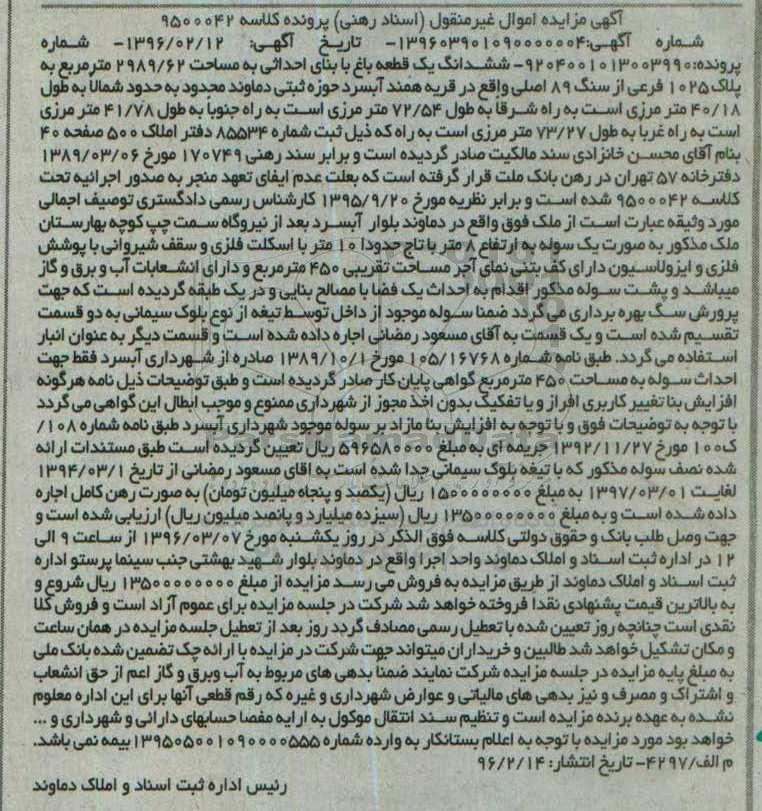 آگهی مزایده اموال غیرمنقول (اسناد رهنی) پرونده کلاسه ۹۵۰۰۰۴۲
شماره آگهی:۱۳۹۶۰۳۹۰۱۰۹۰۰۰۰۰۰۴- تاریخ آگهی: ۱۳۹۶/۰۲/۱۲- شماره
پرونده:۹۲۰۴۰۰۱۰۱۳۰۰۳۹۹۰- ششدانگ یک قطعه باغ با بنای احداثی به مساحت ۲۹۸۹/۶۲ مترمربع به
پلاک ۱۰۲۵ فرعی از سنگ ۸۹ اصلی واقع در قریه همند آبسرد حوزه ثبتی دماوند محدود به حدود شمالا به طول
۴۰/۱۸ متر مرزی است به راه شرقا به طول ۷۲/۵۴ متر مرزی است به راه جنوبا به طول ۴۱/۷۸ متر مرزی
است به راه غربا به طول ۷۳/۲۷ متر مرزی است به راه که ذیل ثبت شماره ۸۵۵۳۴ دفتر املاک ۵۰۰ صفحه ۴۰
بنام آقای محسن خانزادی سند مالکیت صادر گردیده است و برابر سند رهنی ۱۷۰۷۴۹ مورخ ۱۳۸۹/۰۳/۰۶
دفترخانه ۵۷ تهران در رهن بانک ملت قرار گرفته است که بعلت عدم ایفای تعهد منجر به صدور اجرائیه تحت
کلاسه ۹۵۰۰۰۴۲ شده است و برابر نظریه مورخ ۱۳۹۵/۹/۲۰ کارشناس رسمی دادگستری توصیف اجمالی
مورد وثیقه عبارت است از ملک فوق واقع در دماوند بلوار آبسرد بعد از نیروگاه سمت چپ کوچه بهارستان
ملک مذکور به صورت یک سوله به ارتفاع ۸ متر با تاج حدودا ۱۰ متر با اسکلت فلزی و سقف شیروانی با پوشش
فلزی و ایزولاسیون دارای کف بتنی نمای آجر مساحت تقریبی ۴۵۰ مترمربع و دارای انشعابات آب و برق و گاز
میباشد و پشت سوله مذکور اقدام به احداث یک فضا با مصالح بنایی و در یک طبقه گردیده است که جهت
پرورش سگ بهره برداری می گردد ضمنا سوله موجود از داخل توسط تیغه از نوع بلوک سیمانی به دو قسمت
تقسیم شده است و یک قسمت به آقای مسعود رمضانی اجاره داده شده است و قسمت دیگر به عنوان انبار
استفاده می گردد. طبق نامه شماره ۱۰۵/۱۶۷۶۸ مورخ ۱۳۸۹/۱۰/۱ صادره از شهرداری آبسرد فقط جهت
احداث سوله به مساحت ۴۵۰ مترمربع گواهی پایان کار صادر گردیده است و طبق توضیحات ذیل نامه هرگونه
افزایش بنا تغییر کاربری افراز و یا تفکیک بدون اخذ مجوز از شهرداری ممنوع و موجب ابطال این گواهی می گردد
با توجه به توضیحات فوق و با توجه به افزایش بنا مازاد بر سوله موجود شهرداری آبسرد طبق نامه شماره ۱۰۸/
ک۱۰۰ مورخ ۱۳۹۲/۱۱/۲۷ جریمه ای به مبلغ ۵۹۶۵۸۰۰۰۰ ریال تعیین گردیده است طبق مستندات ارائه
شده نصف سوله مذکور که با تیغه بلوک سیمانی جدا شده است به اقای مسعود رمضانی از تاریخ ۱۳۹۴/۰۳/۱
لغایت ۱۳۹۷/۰۳/۰۱ به مبلغ ۱۵۰۰۰۰۰۰۰۰ ریال (یکصد و پنجاه میلیون تومان) به صورت رهن کامل اجاره
داده شده است و به مبلغ ۱۳۵۰۰۰۰۰۰۰۰ ریال (سیزده میلیارد و پانصد میلیون ریال) ارزیابی شده است و
جهت وصل طلب بانک و حقوق دولتی کلاسه فوق الذکر در روز یکشنبه مورخ ۱۳۹۶/۰۳/۰۷ از ساعت ۹ الی
۱۲ در اداره ثبت اسناد و املاک دماوند واحد اجرا واقع در دماوند بلوار شهید بهشتی جنب سینما پرستو اداره
ثبت اسناد و املاک دماوند از طریق مزایده به فروش می رسد مزایده از مبلغ ۱۳۵۰۰۰۰۰۰۰۰ ریال شروع و
به بالاترین قیمت پشنهادی نقدا فروخته خواهد شد شرکت در جلسه مزایده برای عموم آزاد است و فروش کلا
نقدی است چنانچه روز تعیین شده با تعطیل رسمی مصادف گردد روز بعد از تعطیل جلسه مزایده در همان ساعت
و مکان تشکیل خواهد شد طالبین و خریداران میتواند جهت شرکت در مزایده با ارائه چک تضمین شده بانک ملی
به مبلغ پایه مزایده در جلسه مزایده شرکت نمایند ضمنا بدهی های مربوط به آب وبرق و گاز اعم از حق انشعاب
و اشتراک و مصرف و نیز بدهی های مالیاتی و عوارض شهرداری و غیره که رقم قطعی آنها برای این اداره معلوم
نشده به عهده برنده مزایده است و تنظیم سند انتقال موکول به ارایه مفصا حسابهای دارائی و شهرداری و ...
خواهد بود مورد مزایده با توجه به اعلام بستانکار به وارده شماره ۱۳۹۵۰۵۰۰۱۰۹۰۰۰۰۵۵۵ بیمه نمی باشد.
م الف/۴۲۹۷- تاریخ انتشار: ۹۶/۲/۱۴
رئیس اداره ثبت اسناد و املاک دماوند